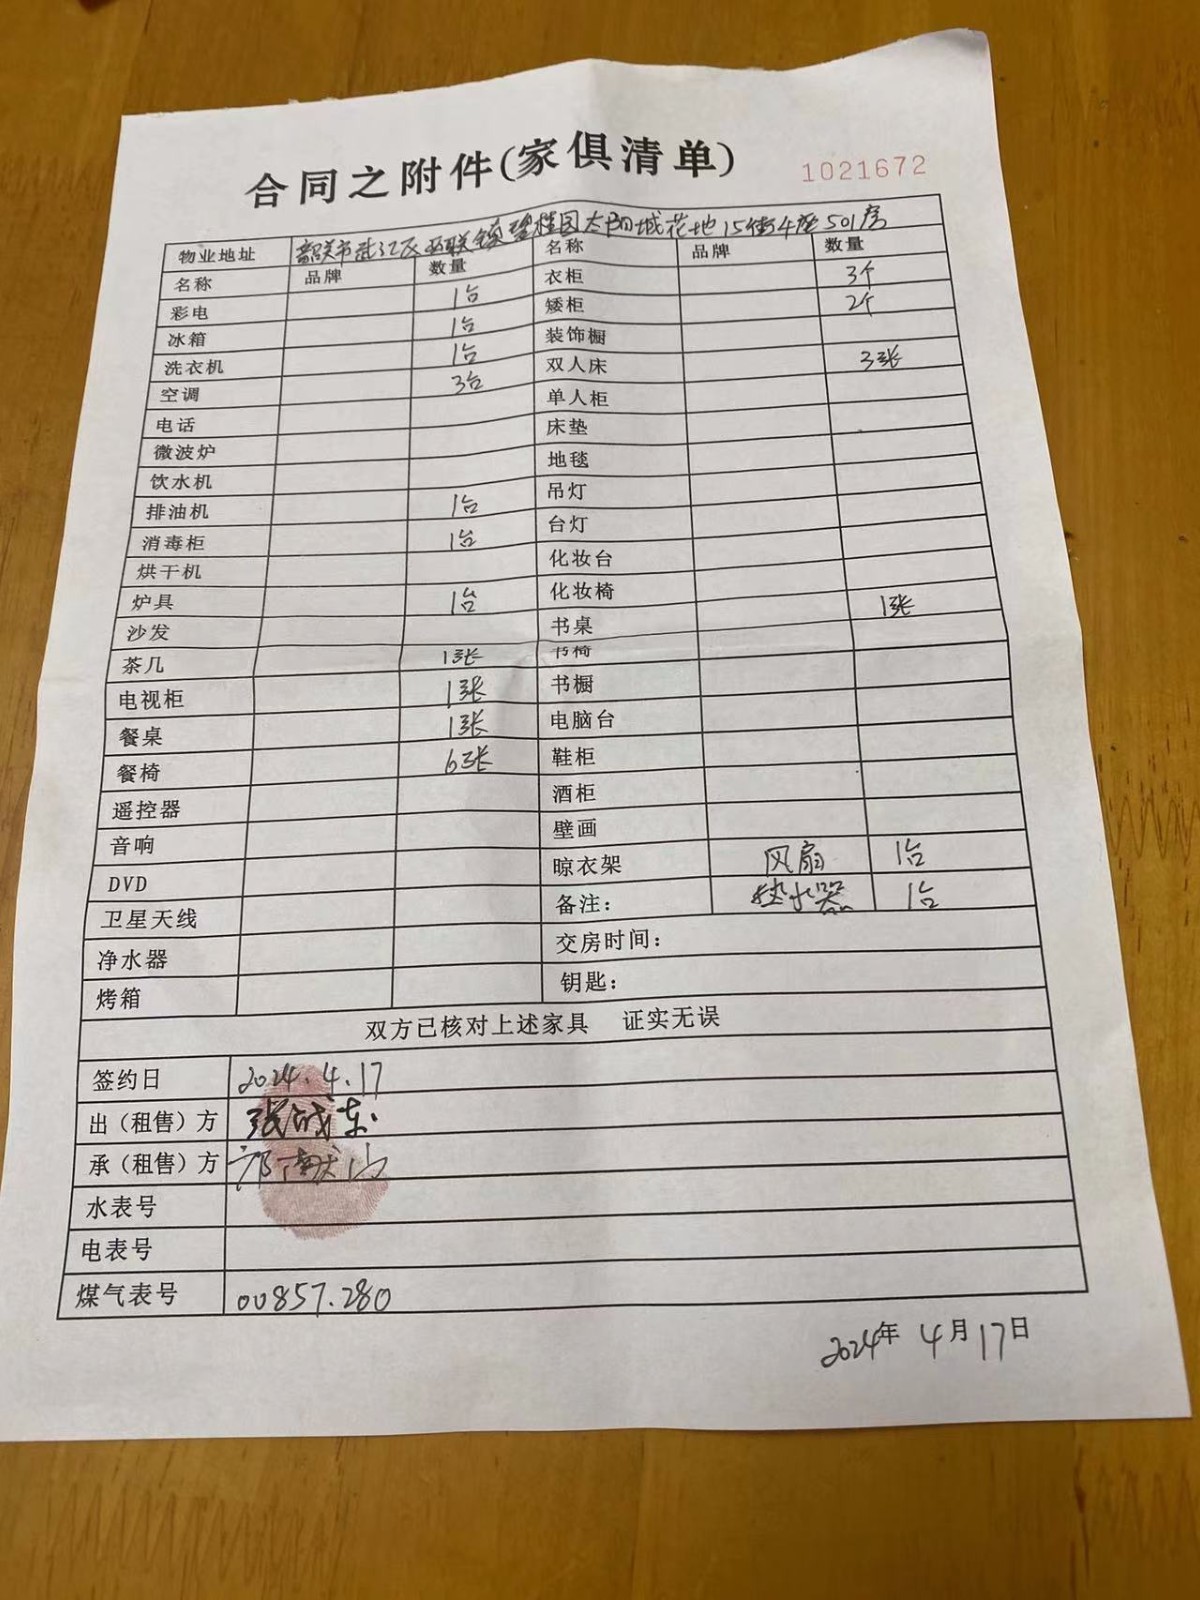 合同之附件(家俱清单)
1021672
物业地址 韶关市武江区西联镇碧桂园太阳城花地15街4座501房
名称 品牌 数量 名称 品牌 数量
彩电 1台 衣柜 3个
冰箱 1台 矮柜 2个
洗衣机 1台 装饰橱
空调 3台 双人床 3张
电话 单人柜
微波炉 床垫
饮水机 地毯
排油机 1台 吊灯
消毒柜 1台 台灯
烘干机 化妆台
炉具 1台 化妆椅
沙发 书桌 1张
茶几 1张 书椅
电视柜 1张 书橱
餐桌 1张 电脑台
餐椅 6张 鞋柜
遥控器 酒柜
音响 壁画
DVD 晾衣架 风扇 1台
卫星天线 备注: 热水器 1台
净水器 交房时间:
烤箱 钥匙:
双方已核对上述家具 证实无误
签约日 2024.4.17
出(租售)方 张成东
承(租售)方
水表号
电表号
煤气表号 00857.280
2024年 4月17日